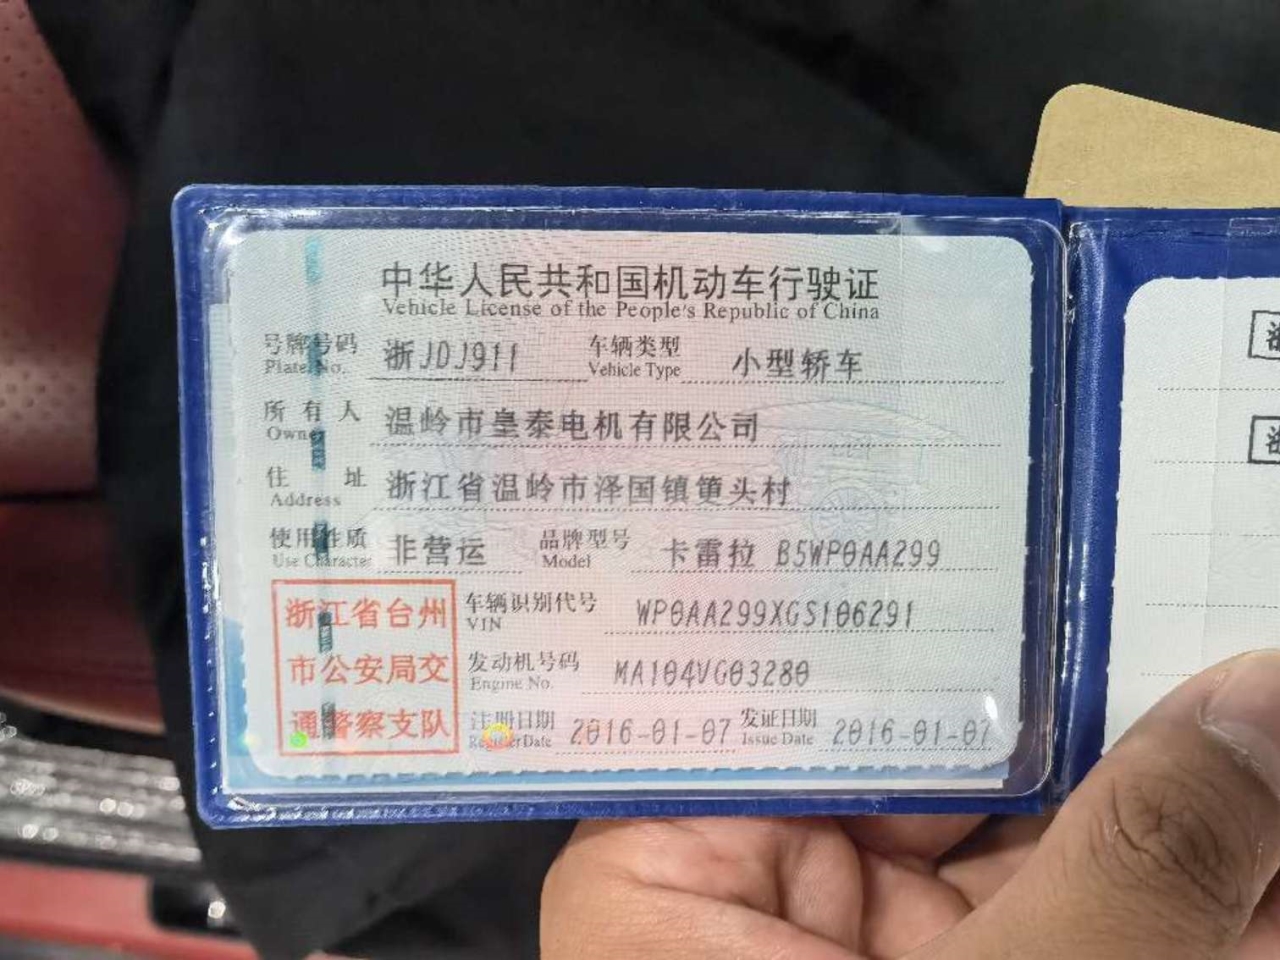 中华人民共和国机动车行驶证
Vehicle License of the People's Republic of China
号牌号码 浙JDJ911 车辆类型 小型轿车
Plate No. Vehicle Type
所有人 温岭市皇泰电机有限公司
Owner
住址 浙江省温岭市泽国镇箄头村
Address
使用性质 非营运 品牌型号 卡雷拉 B5WP0AA299
Use Character Model
浙江省台州 车辆识别代号 WP0AA299XGS106291
VIN
市公安局交 发动机号码 MA104VG03280
Engine No.
通警察支队 注册日期 2016-01-07 发证日期 2016-01-07
Register Date Issue Date